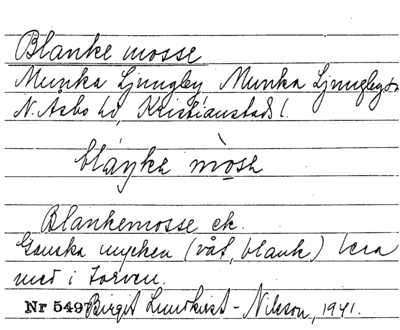 Blanke mosse
Munka Ljungby Munka Ljungby sn
N. Åsbo hd, Kristianstads l.
blaŋkə mòsə
Blankemosse ek.
Ganska mycken (våt, blank) lera
med i torven.
Nr 549 Birgit Lundkvist-Nilsson, 1941.